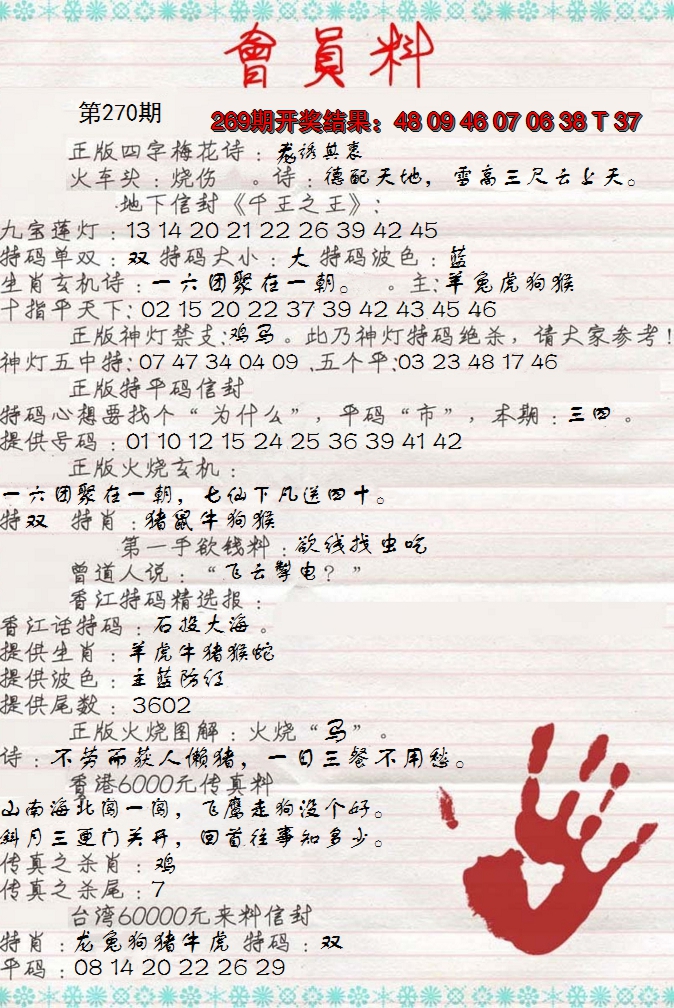 會員料
第270期
269期开奖结果：48 09 46 07 06 38 T 37
正版四字梅花诗：龙诱其衷
火车头：烧伤 。诗：德配天地，雪高三尺云上天。
地下信封《千王之王》：
九宝莲灯：13 14 20 21 22 26 39 42 45
特码单双：双 特码大小：大 特码波色：蓝
生肖玄机诗：一六团聚在一朝。 。主：羊兔虎狗猴
十指平天下：02 15 20 22 37 39 42 43 45 46
正版神灯禁支：鸡马。此乃神灯特码绝杀，请大家参考！
神灯五中特：07 47 34 04 09 .五个平：03 23 48 17 46
正版特平码信封
特码心想要找个“为什么”，平码“市”，本期：三四。
提供号码：01 10 12 15 24 25 36 39 41 42
正版火烧玄机：
一六团聚在一朝，七仙下凡送四十。
特双 特肖：猪鼠牛狗猴
第一手欲钱料：欲钱找虫吃
曾道人说：“飞云掣电？”
香江特码精选报：
香江话特码：石投大海。
提供生肖：羊虎牛猪猴蛇
提供波色：主蓝防红
提供尾数：3602
正版火烧图解：火烧“马”。
诗：不劳而获人懒猪，一日三餐不用愁。
香港6000元传真料
山南海北闯一闯，飞鹰走狗没个好。
斜月三更门关开，回首往事知多少。
传真之杀肖：鸡
传真之杀尾：7
台湾60000元来料信封
特肖：龙兔狗猪牛虎 特码：双
平码：08 14 20 22 26 29